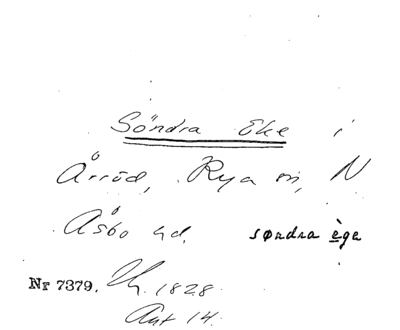 Söndra Eke i
Årröd, Rya sn, N
Åsbo hd. søndra ège
Nr 7379. 1828
Akt 14.